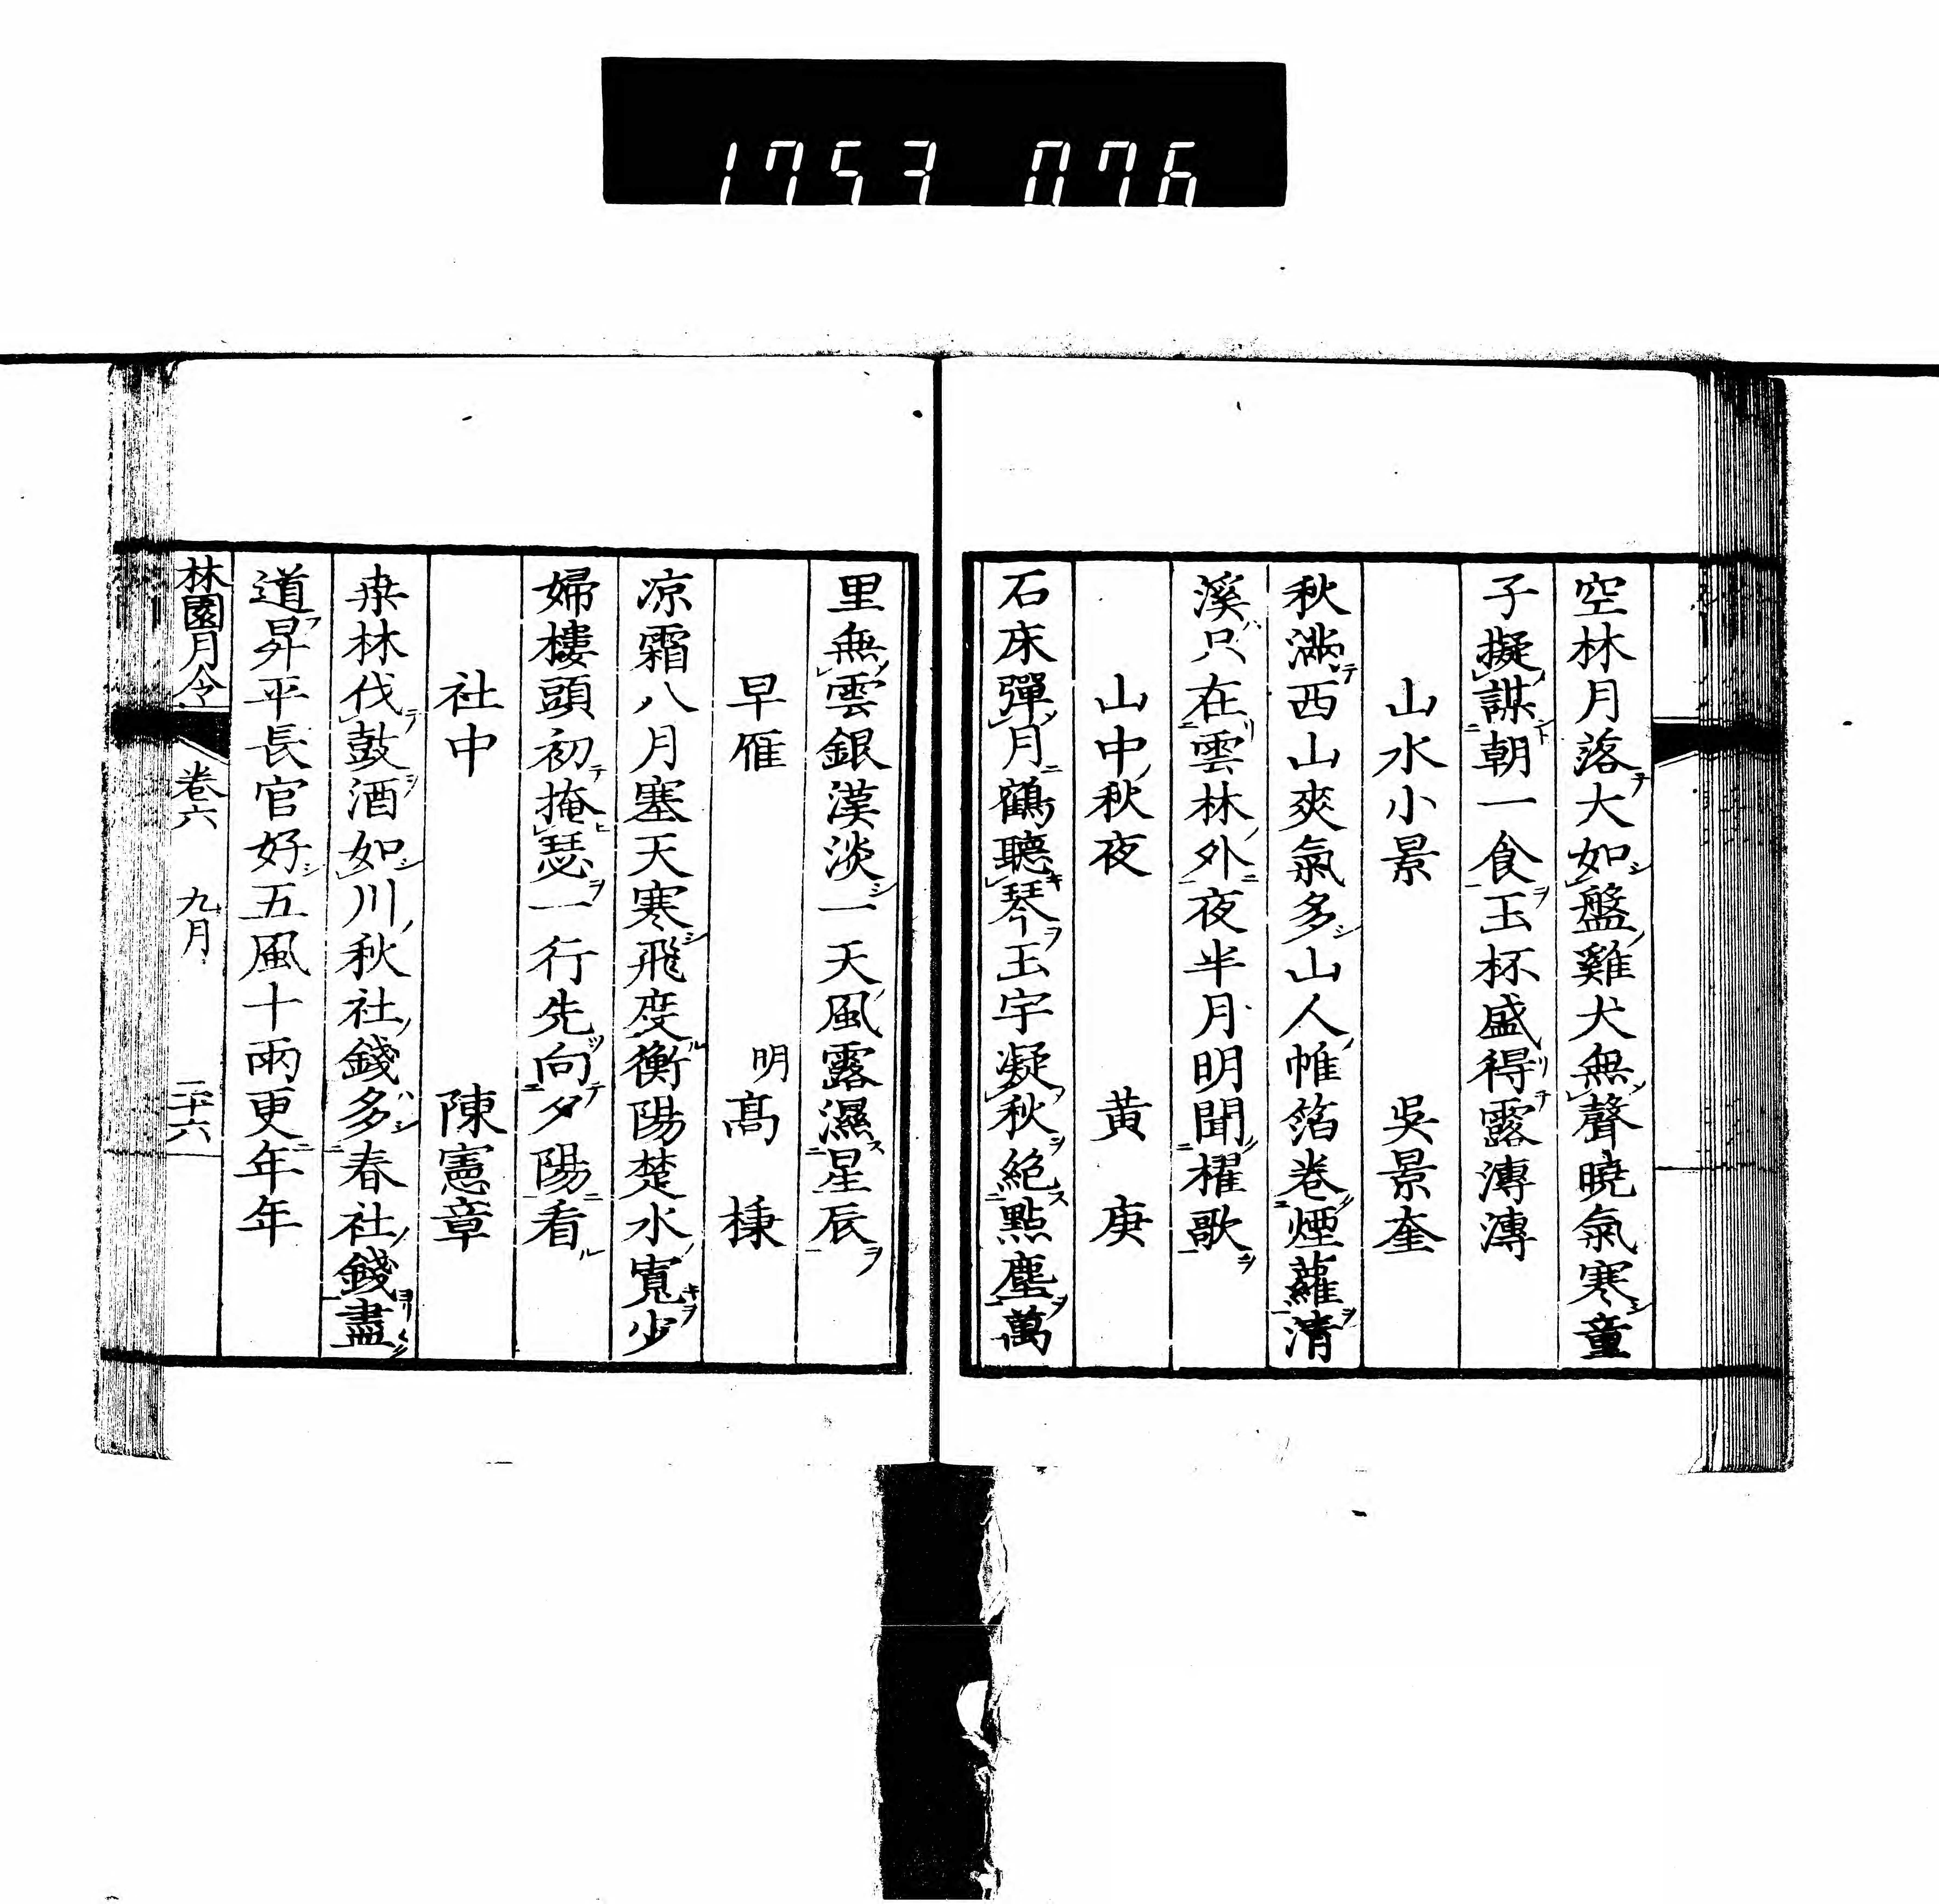 1753 076
空林月落大如盤雞犬無聲曉氣寒童
子擬謀朝一食玉杯盛得露漙漙
山水小景 吳景奎
秋滿西山爽氣多山人帷箔卷煙蘿清
溪只在雲林外夜半月明聞櫂歌
山中秋夜 黃庚
石床彈月鶴聽琴玉宇凝秋絕點塵萬
里無雲銀漢淡一天風露濕星辰
早雁 明 高棅
凉霜八月塞天寒飛度衡陽楚水寬少
婦樓頭初掩瑟一行先向夕陽看
社中 陳憲章
桒林伐鼓酒如川秋社錢多春社錢盡
道昇平長官好五風十雨更年年
林園月令 卷六 九月 二十六